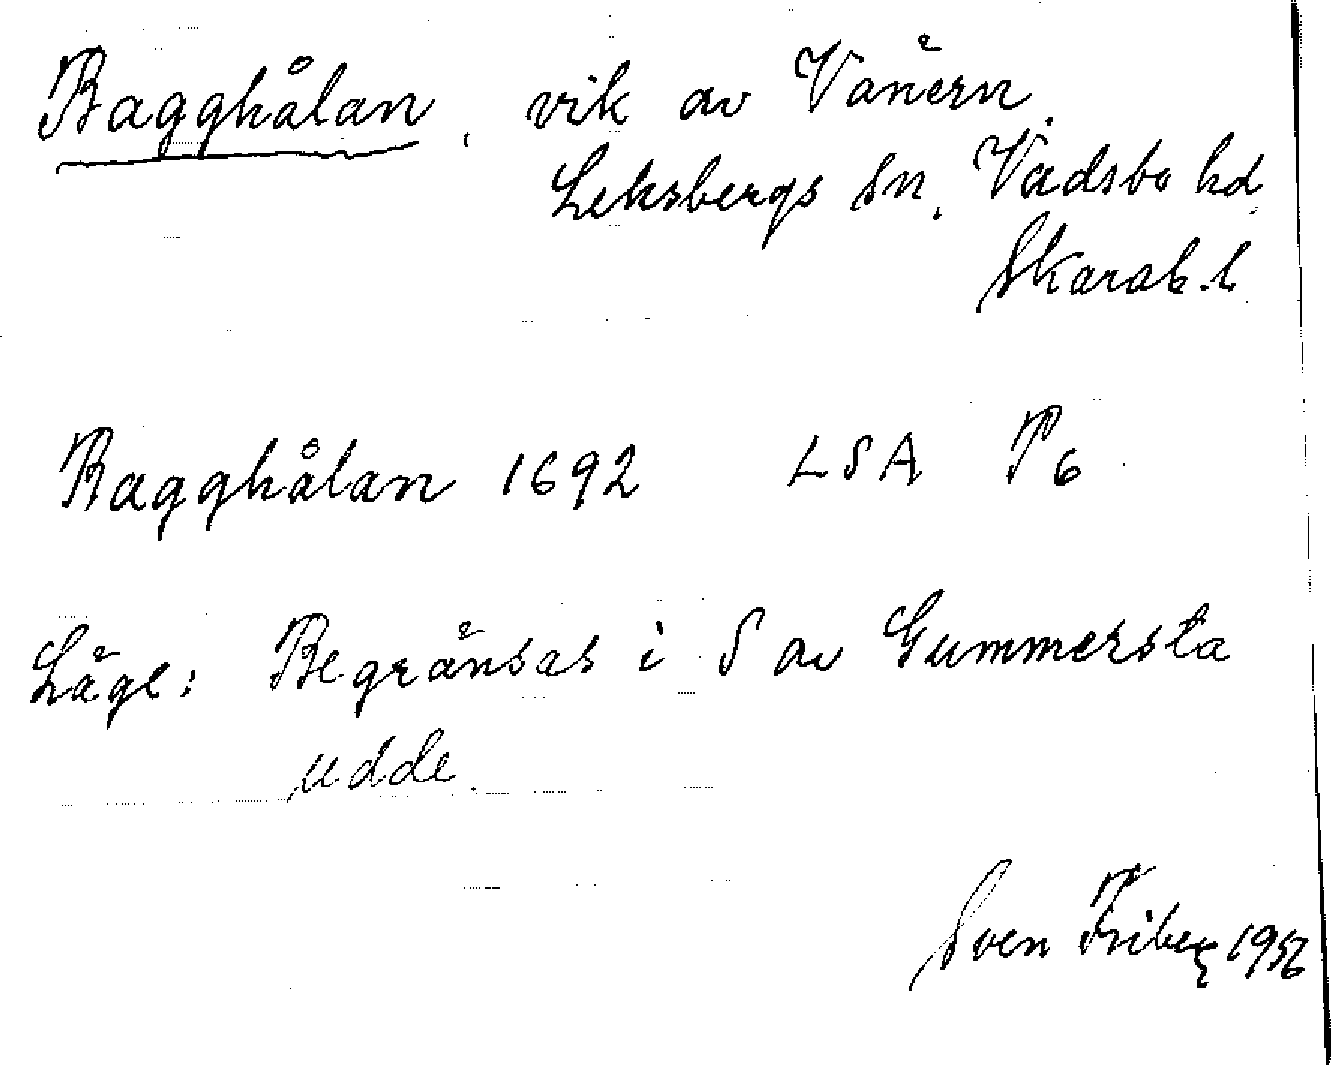 Bagghålan, vik av Vänern.
Leksbergs sn, Vadsbo hd.
Skarab. l.
Bagghålan 1692 LSA P6
Läge: Begränsas i S av Gummersta
udde.
Sven Friberg 1956